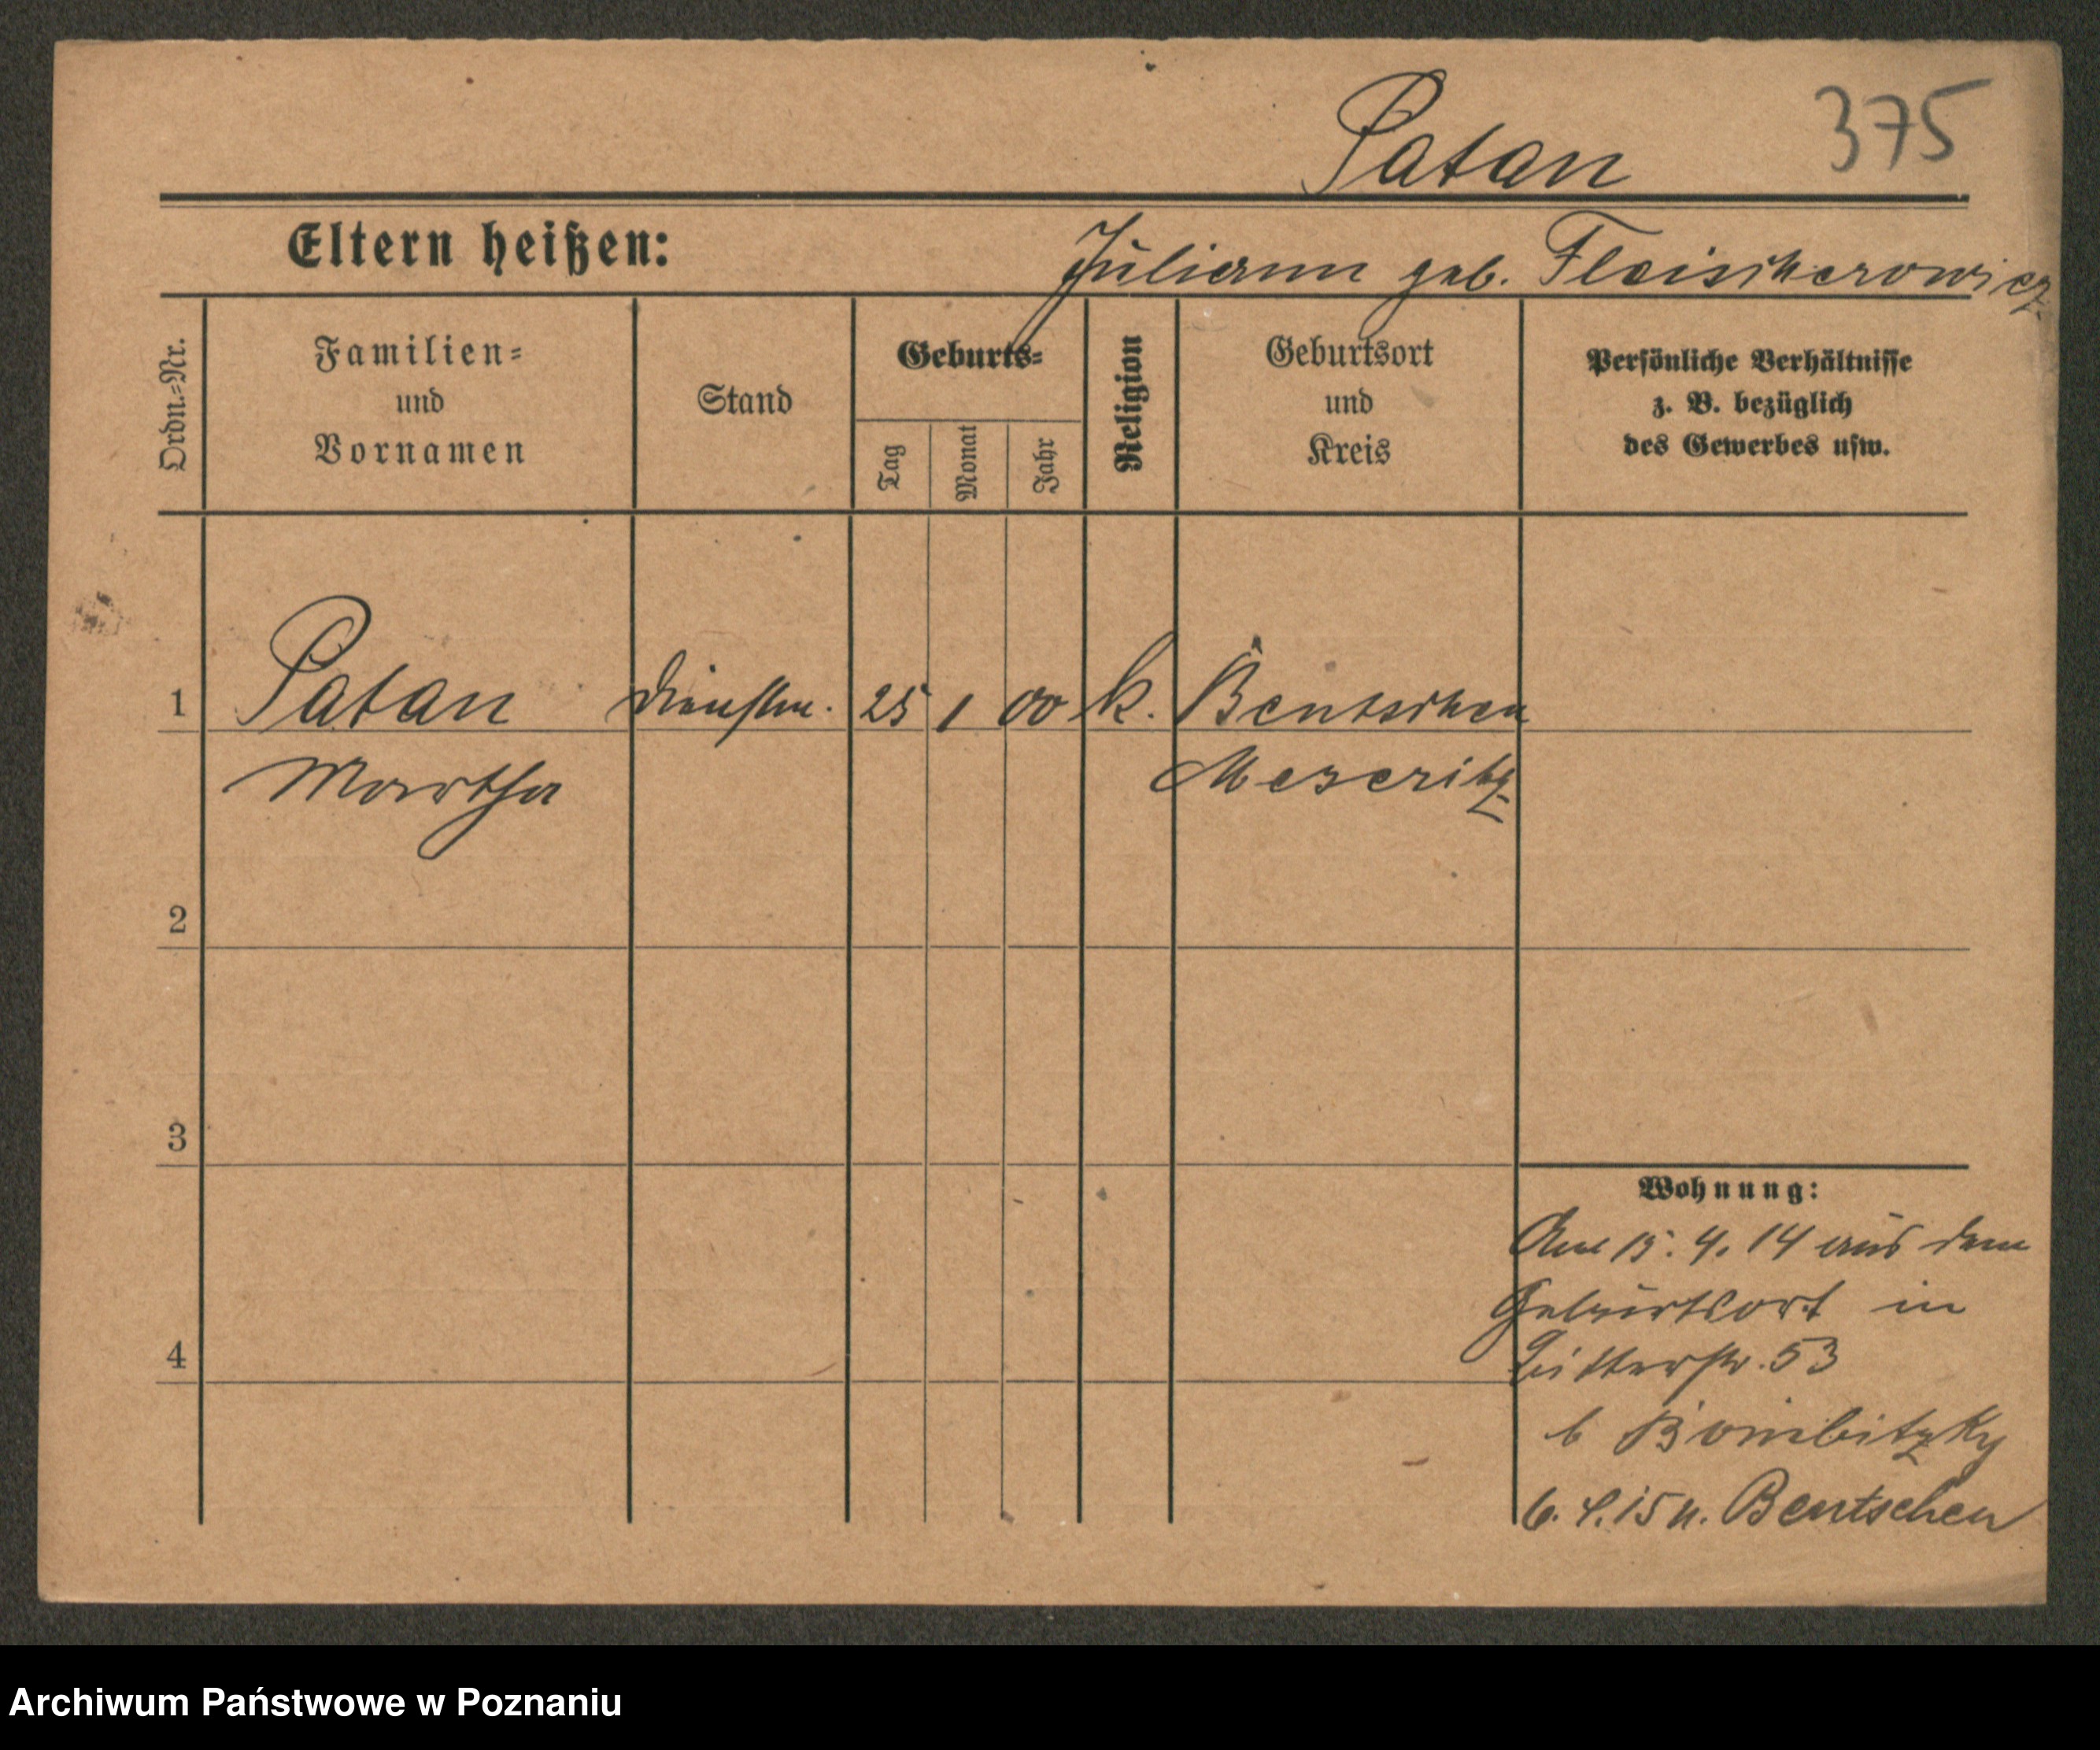 375
Patan
Eltern heißen:
Juliann geb. Fleischerowicz
Ordn.=Nr.
Familien=
und
Vornamen
Stand
Geburts=
Tag
Monat
Jahr
Religion
Geburtsort
und
Kreis
Persönliche Verhältnisse
z. B. bezüglich
des Gewerbes usw.
1 Patan Dienstm. 25 1 00 k. Bentschen
Martha Meseritz
2
3
4
Wohnung:
Am 15. 4. 14 aus dem
Geburtsort in
53
b
6. 4. 15 n. Bentschen
Archiwum Państwowe w Poznaniu